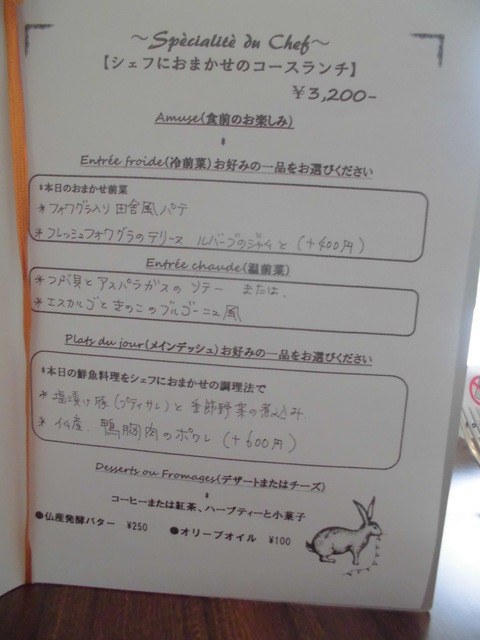 ～Spècialitè du Chef～
【シェフにおまかせのコースランチ】
￥3,200-
Amuse(食前のお楽しみ)
Entrée froide(冷前菜)お好みの一品をお選びください
*本日のおまかせ前菜
*フォワグラ入り 田舎風パテ
*フレッシュフォワグラのテリーヌ ルバーブのジャムと (+400円)
Entrée chaude(温前菜)
*つぶ貝とアスパラガスのソテー または、
*エスカルゴときのこのブルゴーニュ風
Plats du jour(メインデッシュ)お好みの一品をお選びください
*本日の鮮魚料理をシェフにおまかせの調理法で
*塩漬け豚(プティサレ)と季節野菜の煮込み
*仏産 鴨胸肉のポワレ (+600円)
Desserts ou Fromages(デザートまたはチーズ)
コーヒーまたは紅茶、ハーブティーと小菓子
●仏産発酵バター ¥250 ●オリーブオイル ¥100